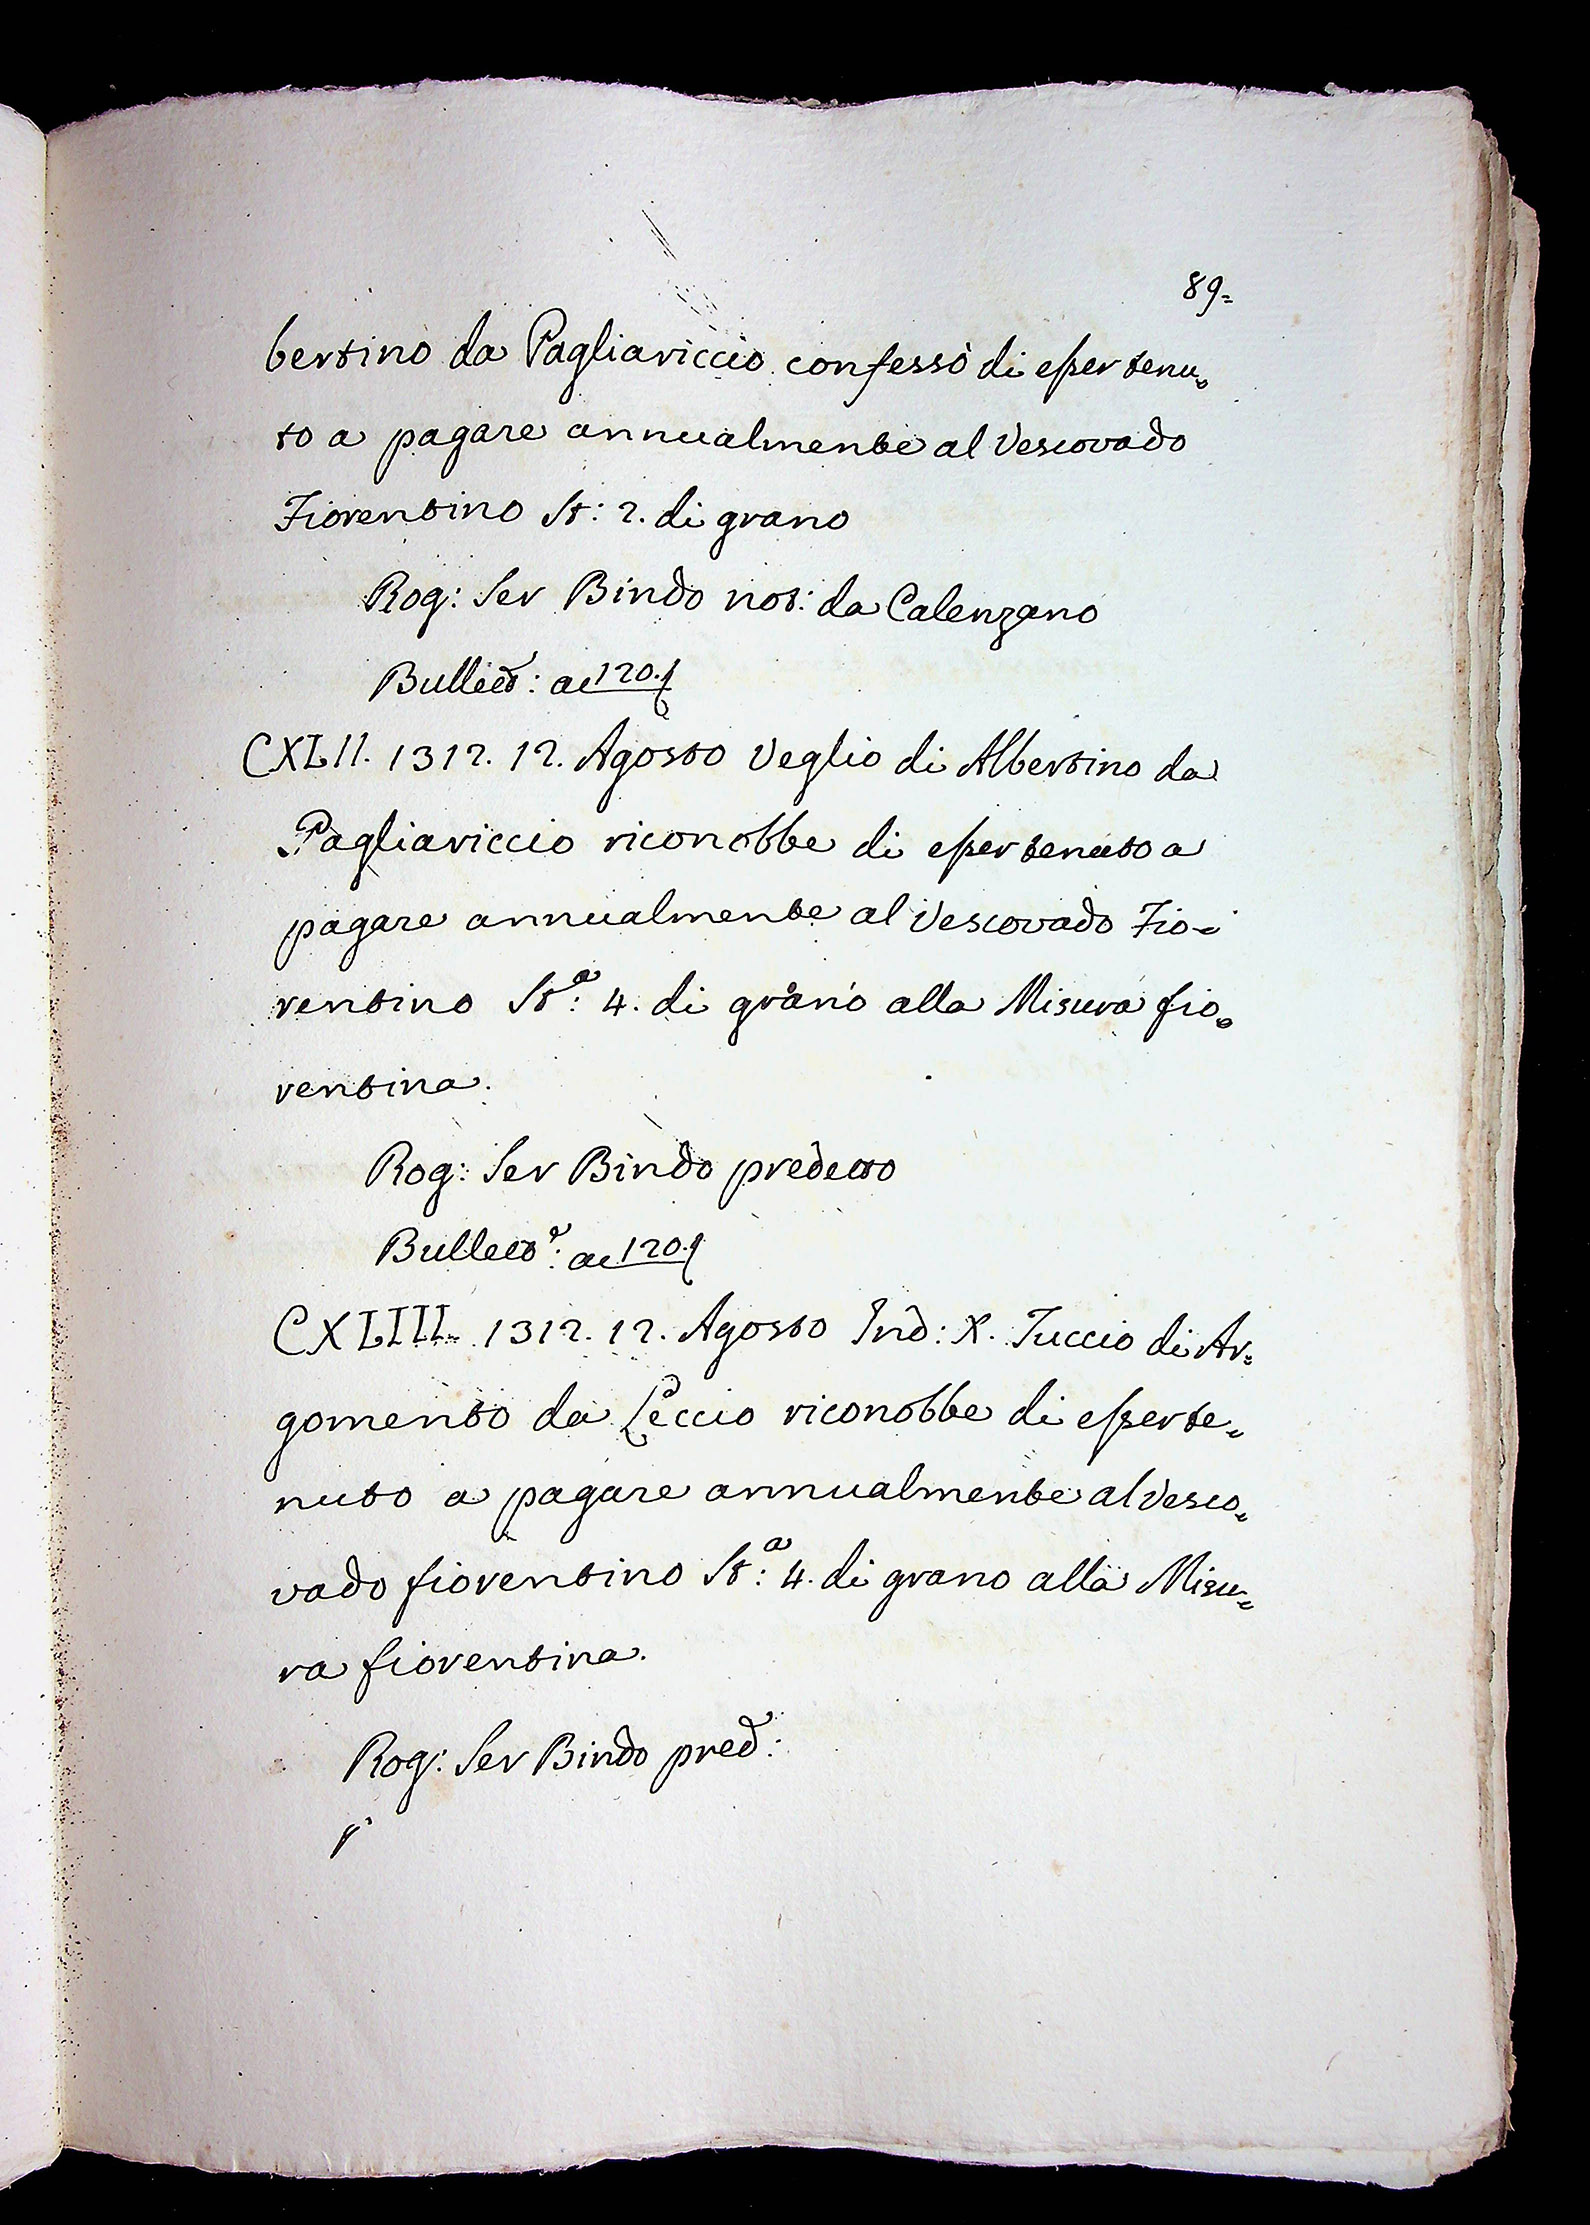 89=
bertino da Pagliariccio confessò di esser tenu=
to a pagare annualmente al Vescovado
Fiorentino St: 2. di grano
Rog: Ser Bindo not: da Calenzano
Bullett: ac 120.
CXLII. 1312. 12. Agosto Veglio di Albertino da
Pagliariccio riconobbe di esser tenuto a
pagare annualmente al Vescovado Fio=
rentino Stª: 4. di grano alla Misura fio=
rentina.
Rog: Ser Bindo predetto
Bullettª: ac 120.
CXLIII. 1312. 12. Agosto Ind: X. Tuccio di Ar=
gomento da Leccio riconobbe di esser te=
nuto a pagare annualmente al Vesco=
vado fiorentino Stª: 4. di grano alla Misu=
ra fiorentina.
Rog: Ser Bindo pred: